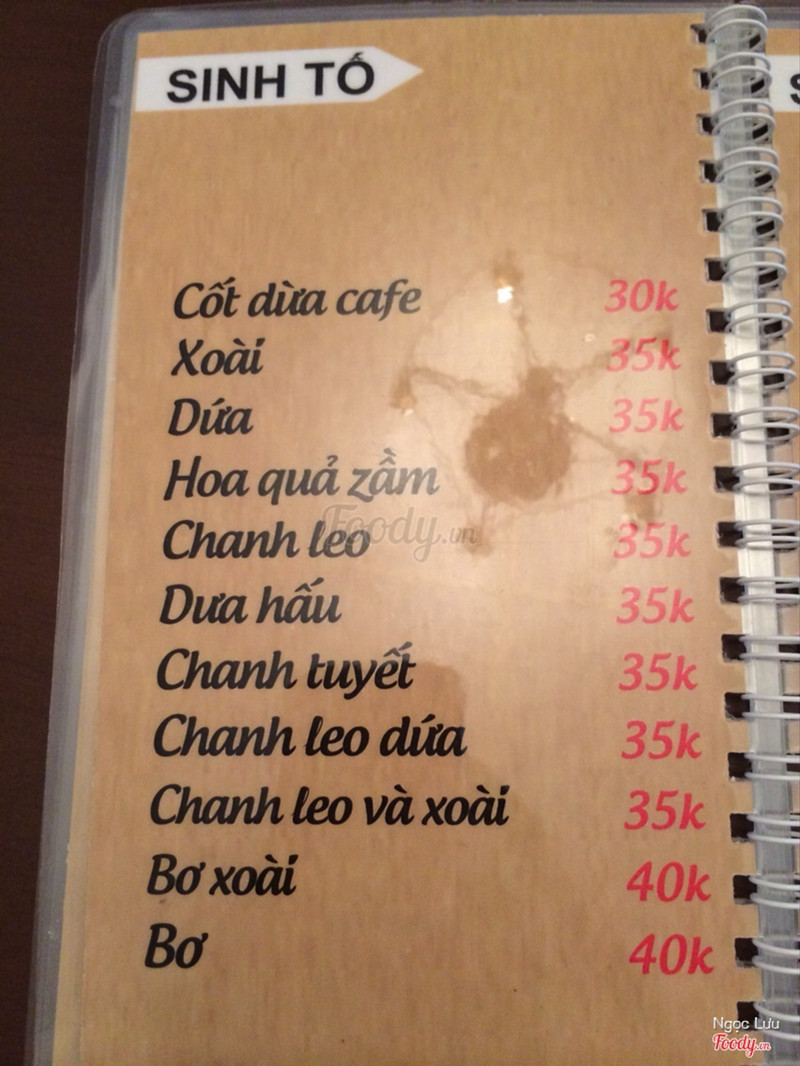 SINH TỐ
Cốt dừa cafe 30k
Xoài 35k
Dứa 35k
Hoa quả zầm 35k
Chanh leo 35k
Foody.vn
Dưa hấu 35k
Chanh tuyết 35k
Chanh leo dứa 35k
Chanh leo và xoài 35k
Bơ xoài 40k
Bơ 40k
Ngọc Lưu
Foody.vn